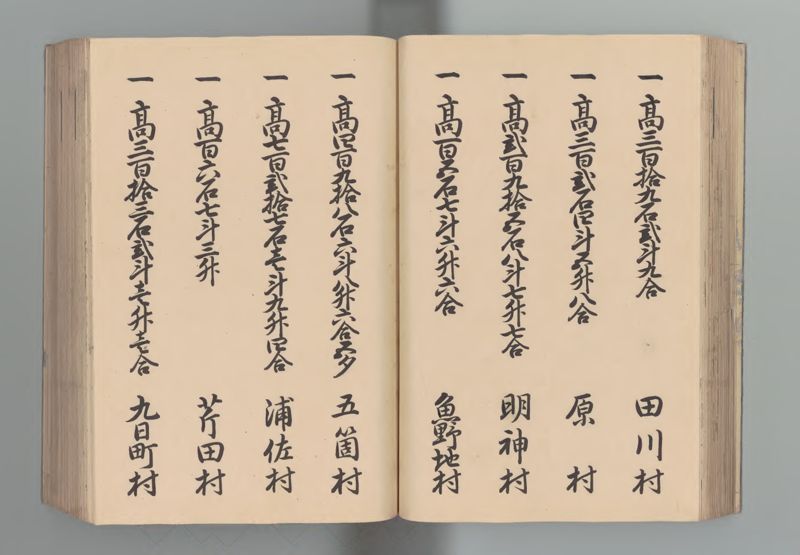 一 高三百拾九石弐斗九合 田川村
一 高三百弐石四斗五升八合 原村
一 高弐百九拾五石八斗七升七合 明神村
一 高百五石七斗六升六合 魚野地村
一 高四百九拾八石六斗八升六合五夕 五箇村
一 高七百弐拾七石壱斗九升四合 浦佐村
一 高百六石七斗三升 芹田村
一 高三百拾三石弐斗壱升壱合 九日町村